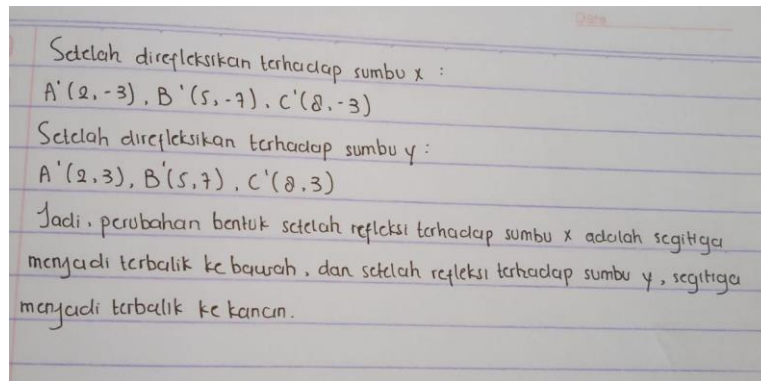 Date
Setelah direfleksikan terhadap sumbu x :
A'(2,-3), B'(5,-7), C'(8,-3)
Setelah direfleksikan terhadap sumbu y :
A'(2,3), B'(5,7), C'(8,3)
Jadi, perubahan bentuk setelah refleksi terhadap sumbu x adalah segitiga
menjadi terbalik ke bawah, dan setelah refleksi terhadap sumbu y, segitiga
menjadi terbalik ke kanan.